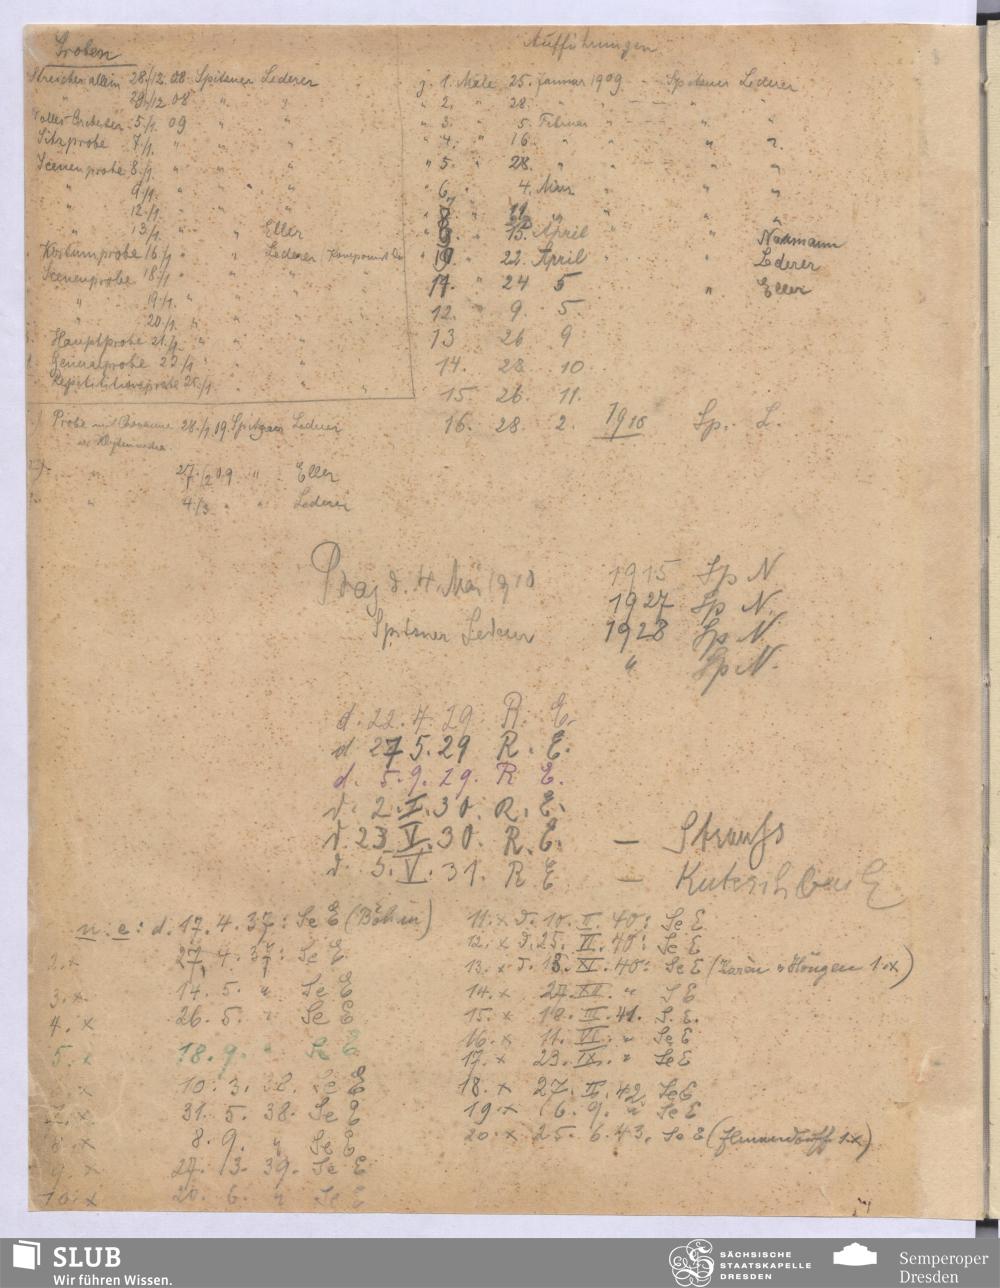 Proben
Streicher allein 28./12. 08 Spitzner Lederer
" 29/12 08 " "
Volles Orchester 5/1. 09 " "
Sitzprobe 7/1. " " "
Scenenprobe 8/1. " " "
" 9/1. " " "
" 12./1. " " "
" 13/1. " " Eller
Kostümprobe 16/1 " " Lederer
Scenenprobe 18/1 " " "
" 19/1. " " "
" 20/1. " " "
Hauptprobe 21./1. " " "
Generalprobe 22/1 " " "
Repititionsprobe 25/1 " " "
Probe mit 28./1 09. Spitzner Lederer
" 27/2 09 " Eller
" 4./3 " " Lederer
Aufführungen
z. 1. Male 25. Januar 1909 — Spitzner Lederer
" 2. " 28. " " — " "
" 3. " 5. Februar " — " "
" 4. " 16 " " " "
" 5. " 28. " " " "
" 6. " 4. März " " "
" " 11 " " " "
" " 15. April " " Naumann
" " 22. April " " Lederer
11. " 24 5 " Eller
12. " 9. 5.
13 26 9
14. 28 10.
15 26. 11.
16. 28. 2. 1910 Sp. L.
Prag d. 4. Mai 1910
Spitzner Lederer
1915 Sp N
1927 Sp N.
1928 Sp N
" Sp N.
d. 22. 4. 29. R. E.
d 27 5. 29 R. E.
d. 5. 9. 29. R E.
d. 2. I. 30. R. E.
d. 23 V. 30. R. E. — Strauss
d. 5. V. 31. R E — Kutzschbach
n. e: d. 17. 4. 37: Se E (Böhm)
2. x 27. 4. 37: Se E
3. x 14. 5. " Se E
4. x 26. 5. " Se E
5. x 18. 9. " Se E
x 10. 3. 38. Se E
7. x 31. 5. 38. Se E
8 x 8. 9. " Se E
9 x 27. 3. 39. Se E
10. x 20. 6. " Se E
11. x d. 10. II. 40: Se E
12. x d. 25. VI. 40: Se E
13. x d. 13. XI. 40: Se E (Karén & Höngen 1. x)
14. x 27. XII. " S E
15. x 10. III. 41. S. E.
16. x 11. VI. " Se E
17. x 23. IX. " Se E
18. x 27. II. 42. Se E
19. x 6. 9. " Se E
20. x 25. 6. 43. Se E
SLUB
Wir führen Wissen.
SÄCHSISCHE
STAATSKAPELLE
DRESDEN
Semperoper
Dresden